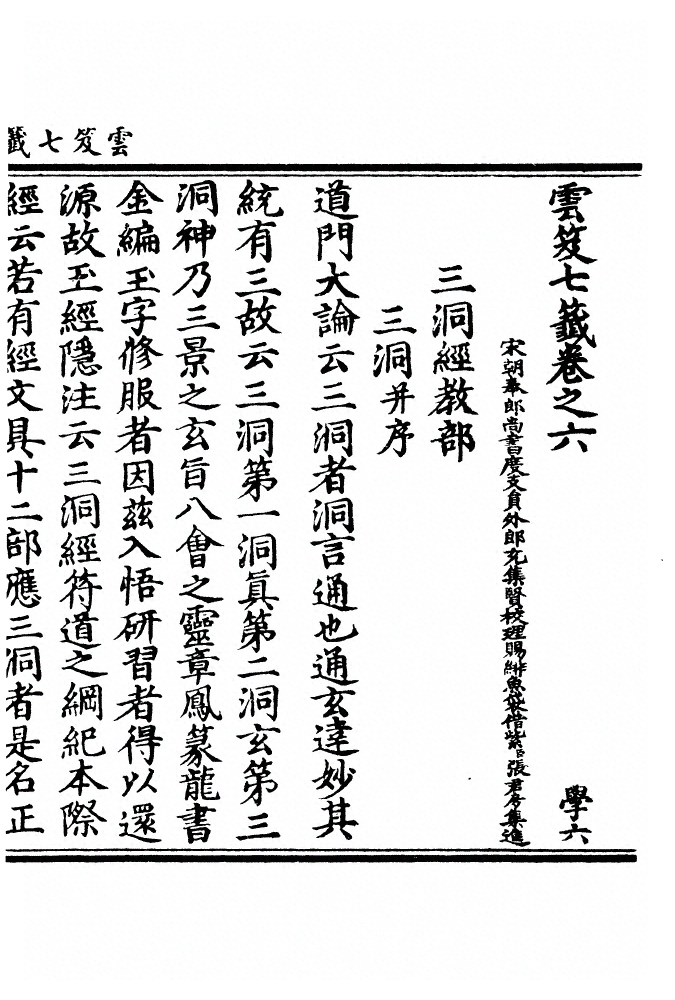 雲笈七籤
雲笈七籤卷之六
學六
宋朝奉郎尚書度支員外郎充集賢校理賜緋魚袋借紫臣張君房集進
三洞經教部
三洞并序
道門大論云三洞者洞言通也通玄達妙其
統有三故云三洞第一洞真第二洞玄第三
洞神乃三景之玄旨八會之靈章鳳篆龍書
金編玉字修服者因兹入悟研習者得以還
源故玉經隱注云三洞經符道之綱紀本際
經云若有經文具十二部應三洞者是名正